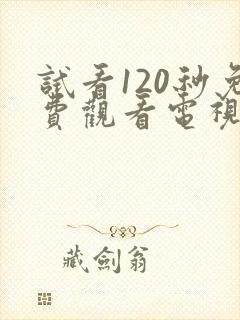 試看120秒免
費觀看電視
藏劍翁